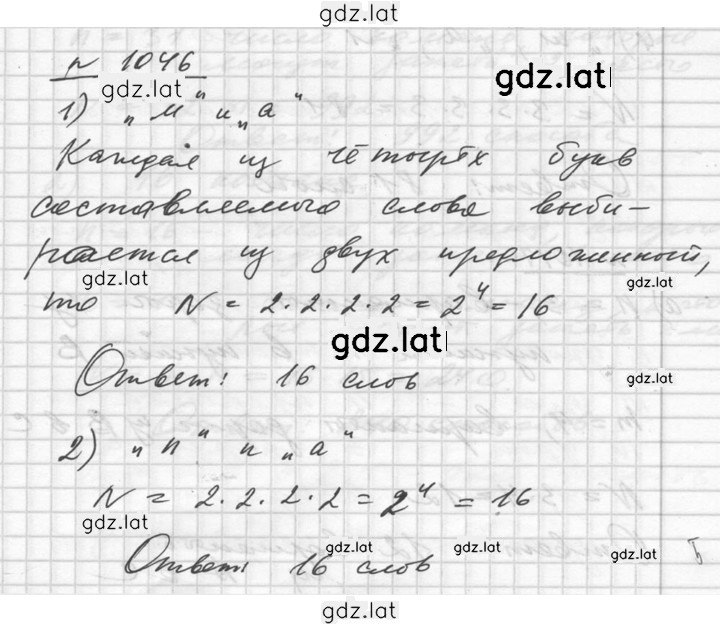 gdz.lat
N 1046
gdz.lat
gdz.lat
1) „м" и „а"
Каждая из четырёх букв
составляемого слова выби-
рается из двух предложенный,
gdz.lat
gdz.lat
то N = 2·2·2·2 = 2⁴ = 16
gdz.lat
Ответ: 16 слов
gdz.lat
2) „п" и „а"
N = 2·2·2·2 = 2⁴ = 16
gdz.lat
Ответ: 16 слов
gdz.lat
gdz.lat
gdz.lat
gdz.lat